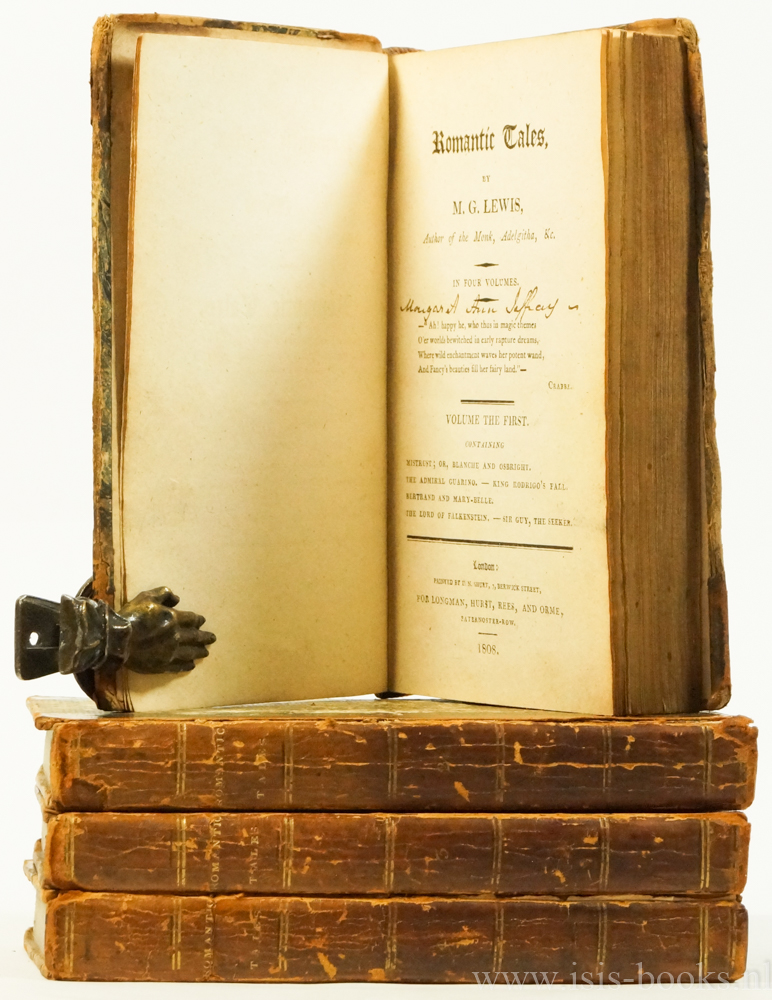 Romantic Tales,
BY
M. G. LEWIS,
Author of the Monk, Adelgitha, &c.
IN FOUR VOLUMES.
Margaret Ann Jeffrey
—"Ah! happy he, who thus in magic themes
O'er worlds bewitched in early rapture dreams,
Where wild enchantment waves her potent wand,
And Fancy's beauties fill her fairy land."—
CRABBE.
VOLUME THE FIRST.
CONTAINING
MISTRUST; OR, BLANCHE AND OSBRIGHT.
THE ADMIRAL GUARINO. — KING RODRIGO'S FALL.
BERTRAND AND MARY-BELLE.
THE LORD OF FALKENSTEIN. — SIR GUY, THE SEEKER.
London:
PRINTED BY D. N. SHURY, 7, BERWICK STREET,
FOR LONGMAN, HURST, REES, AND ORME,
PATERNOSTER-ROW.
1808.
ROMANTIC
TALES
ROMANTIC
TALES
ROMANTIC
TALES
www.isis-books.nl